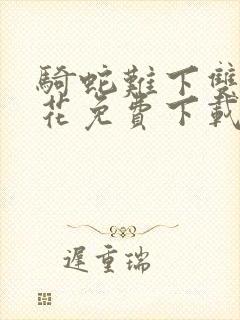 騎蛇難下雙
花免費下載
遲重瑞